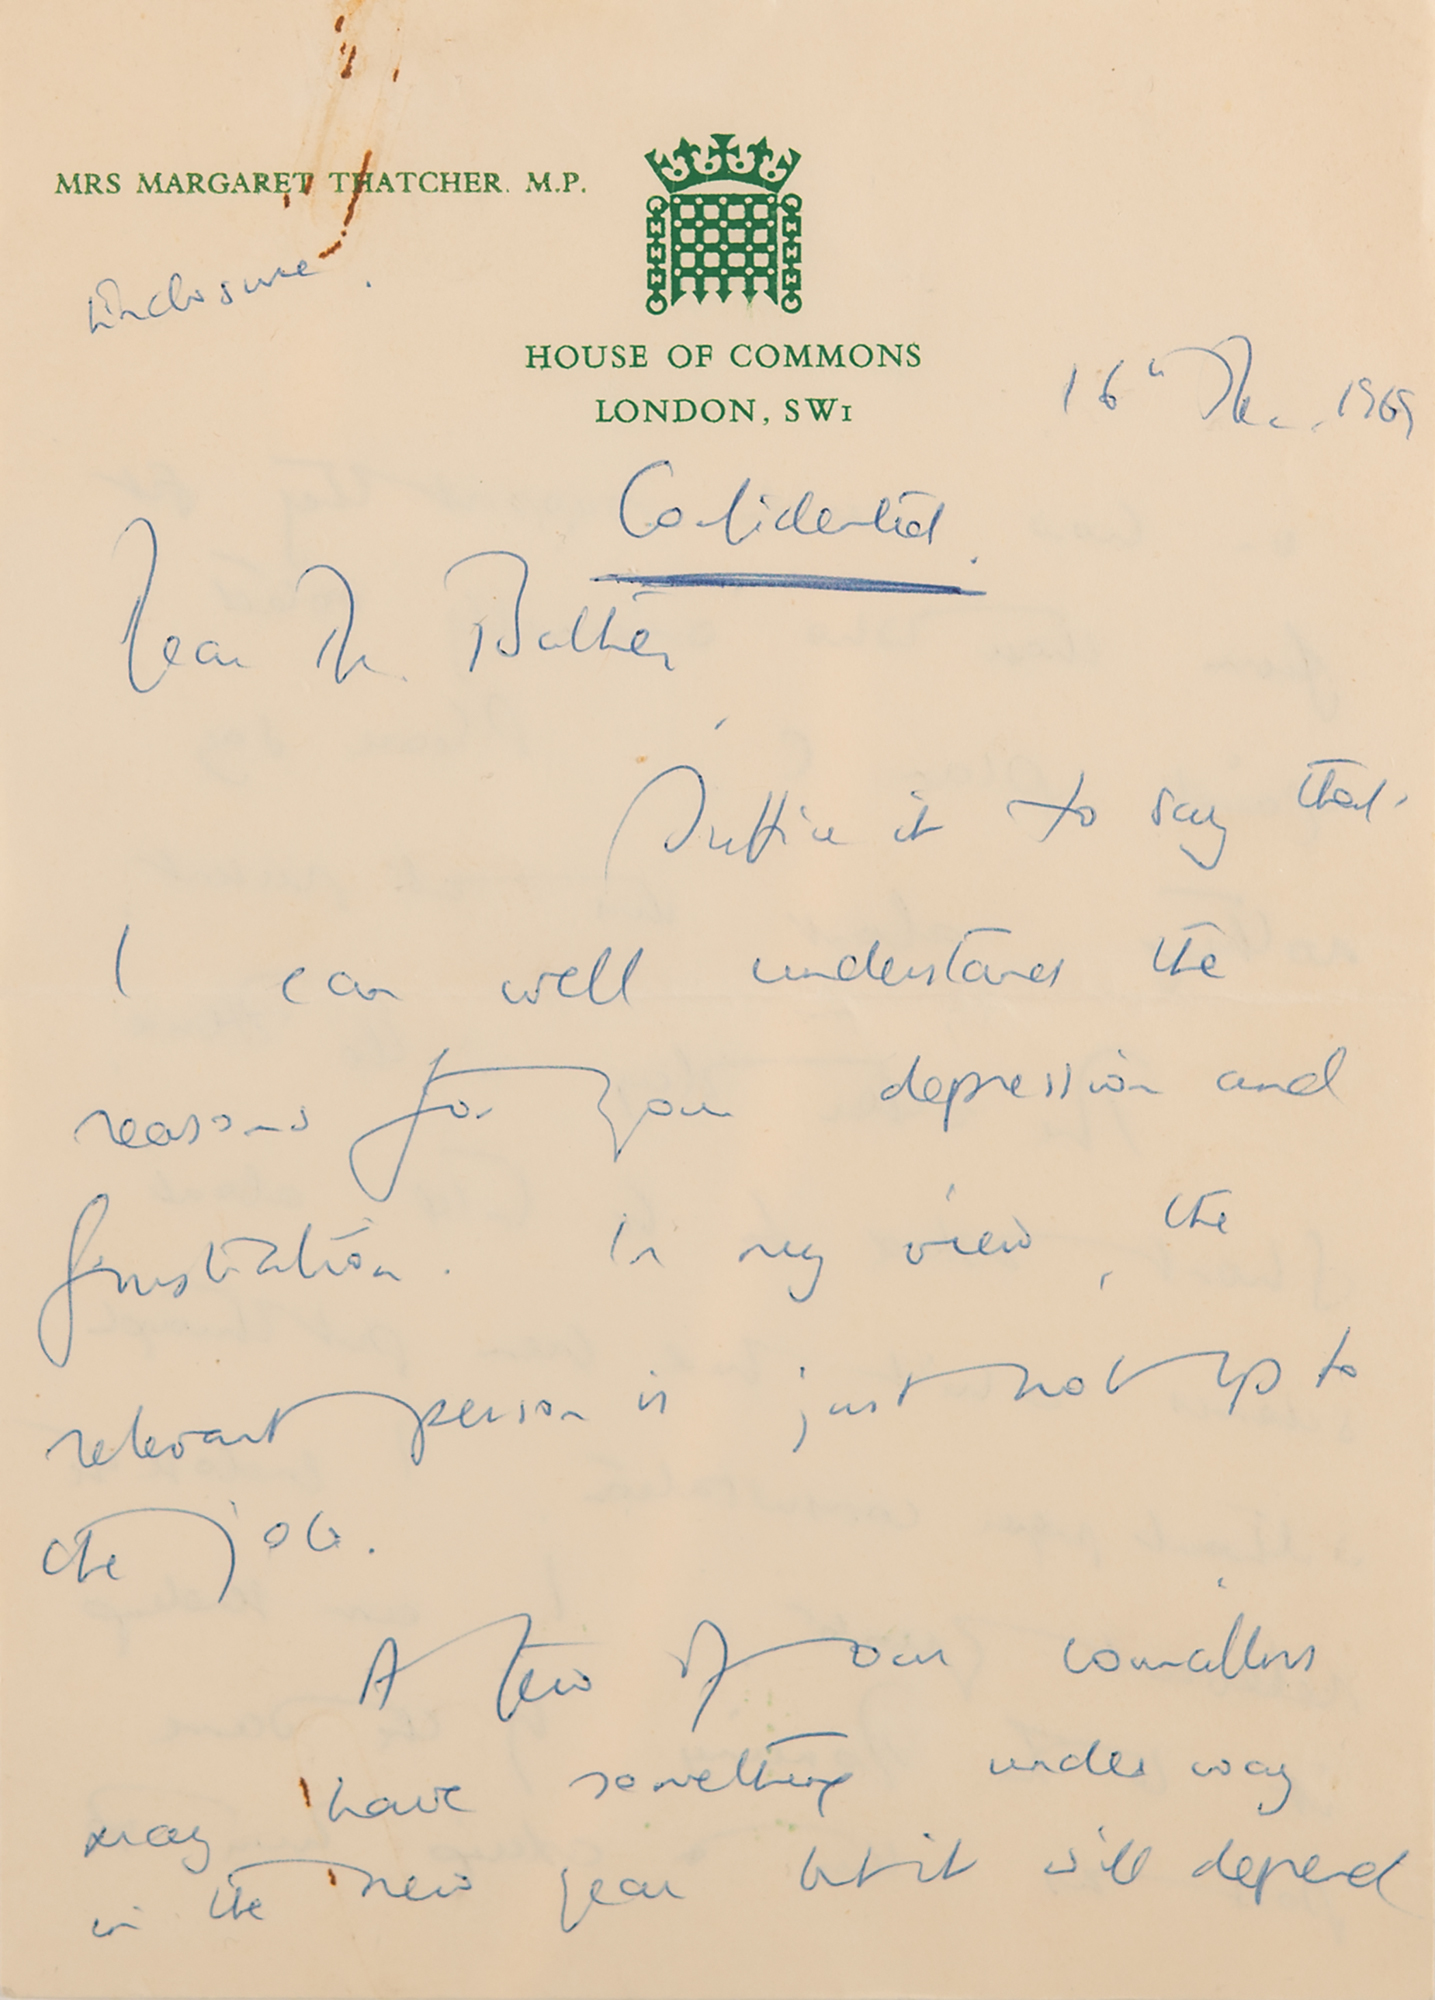 MRS MARGARET THATCHER. M.P.
Enclosure.
HOUSE OF COMMONS
LONDON, SW1
16th Dec. 1969
Confidential.
Dear Mr.
Suffice it to say that
I can well understand the
reasons for your depression and
frustration. In my view, the
relevant person is just not up to
the job.
A few of our councillors
may have something under way
in the new year but it will depend